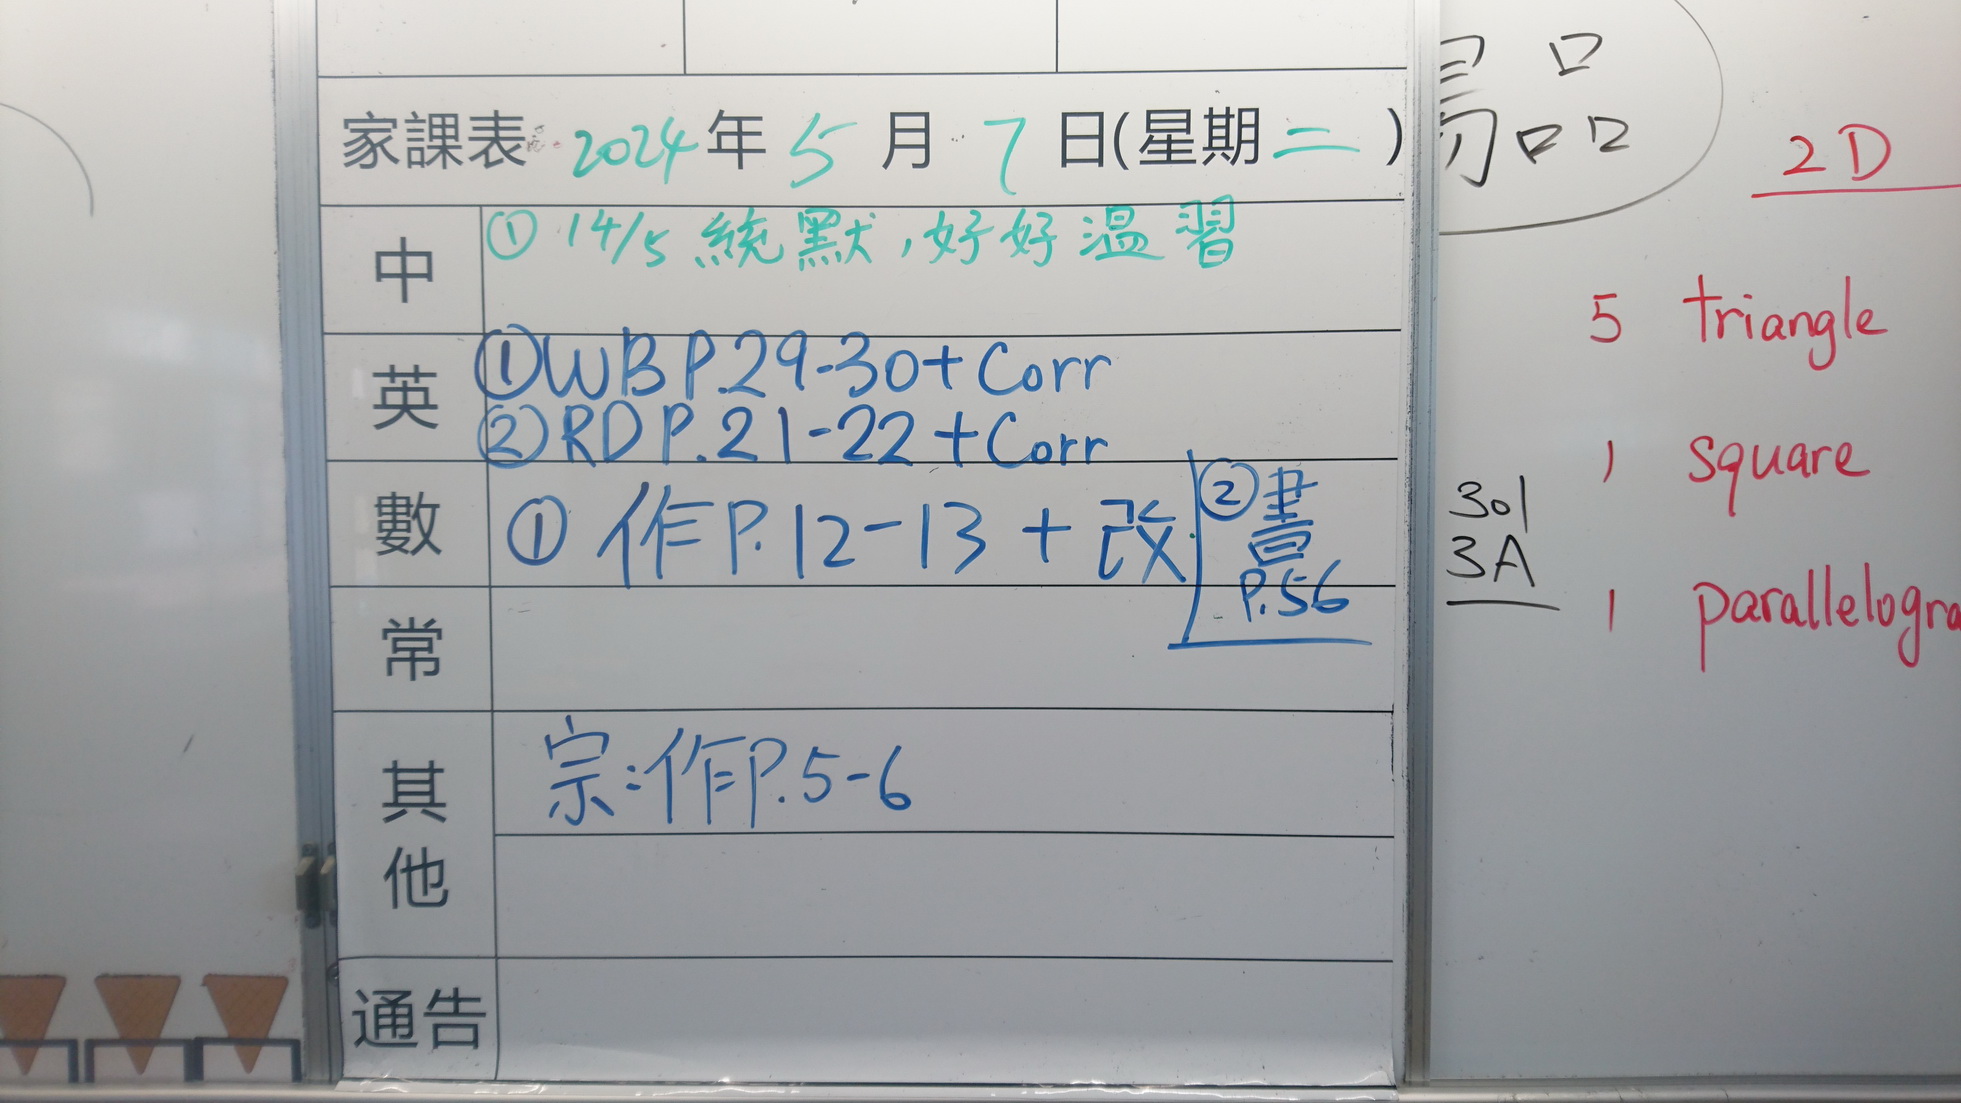 家課表 2024年 5月 7日(星期二)
中 ① 14/5 統默,好好溫習
英 ①WB P.29-30+Corr
②RD P.21-22+Corr
數 ① 作P.12-13 + 改 ②書
P.56
常
其他 宗:作P.5-6
通告
2D
5 triangle
1 square
1 parallelogra
301
3A